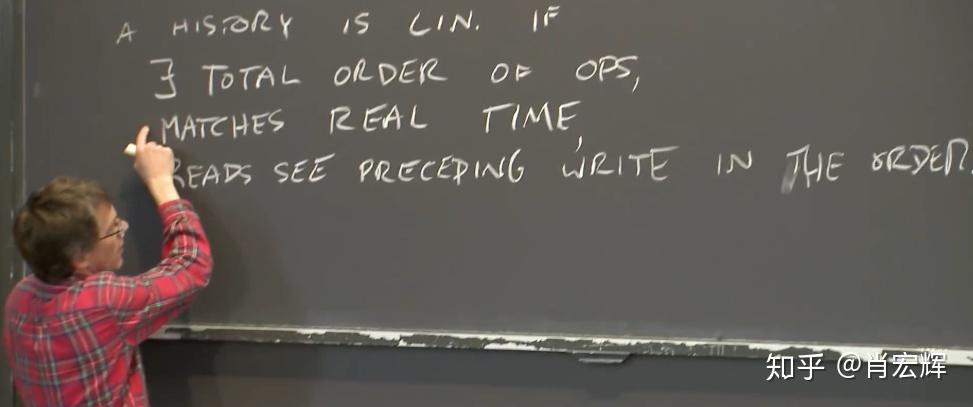 A HISTORY IS LIN. IF
∃ TOTAL ORDER OF OPS,
MATCHES REAL TIME,
READS SEE PRECEDING WRITE IN THE ORDER.
知乎 @肖宏辉